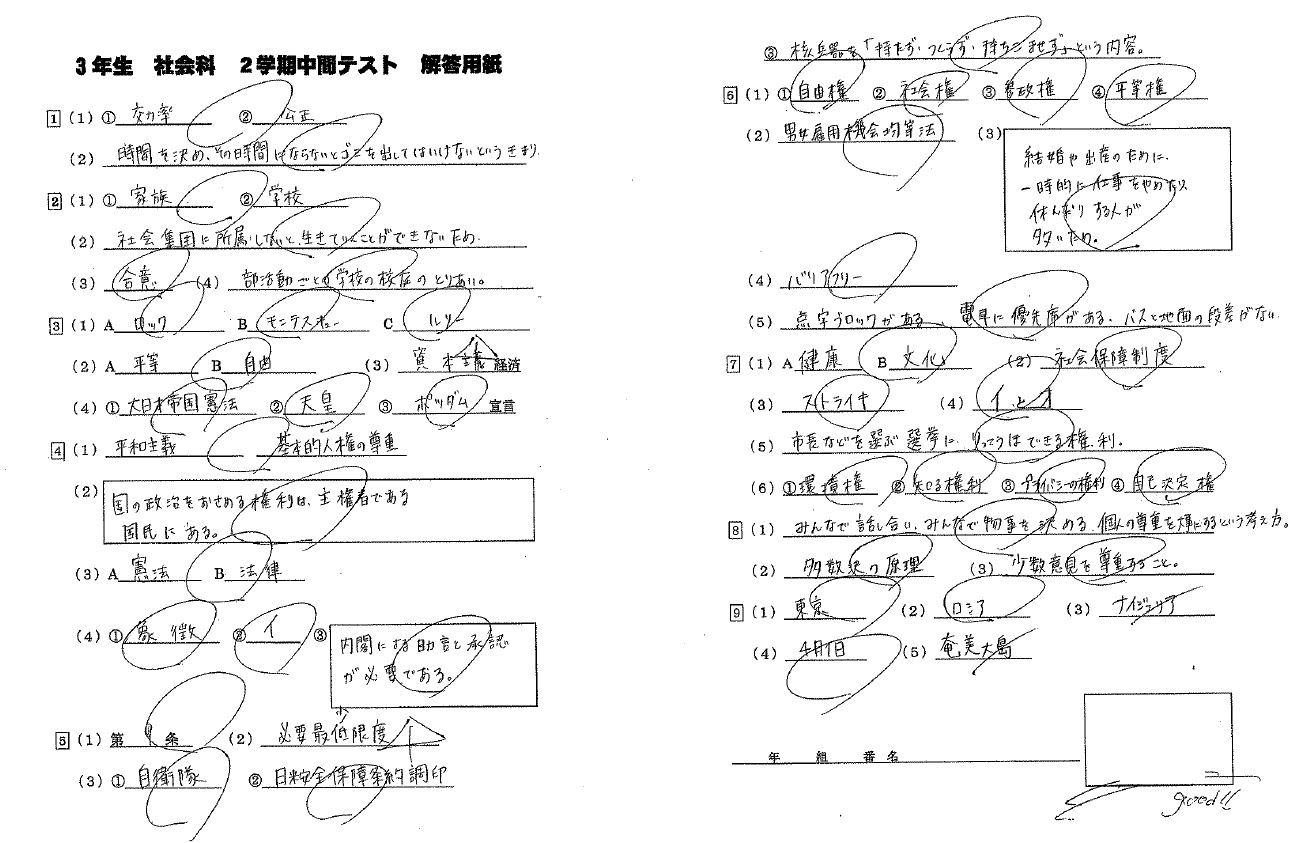 3年生 社会科 2学期中間テスト 解答用紙
1 (1) ① 効率 ② 公正
(2) 時間を決め、その時間にならないとゴミを出してはいけないというきまり。
2 (1) ① 家族 ② 学校
(2) 社会集団に所属しないと、生きていくことができないため。
(3) 合意 (4) 部活動ごとの学校の校庭のとりあい。
3 (1) A ロック B モンテスキュー C ルソー
(2) A 平等 B 自由 (3) 資本主義 経済
(4) ① 大日本帝国憲法 ② 天皇 ③ ポツダム 宣言
4 (1) 平和主義 基本的人権の尊重
(2) 国の政治をおさめる権利は、主権者である
国民にある。
(3) A 憲法 B 法律
(4) ① 象徴 ② イ ③ 内閣による助言と承認
が必要である。
5 (1) 第 9 条 (2) 必要最低限度
小
(3) ① 自衛隊 ② 日米安全保障条約調印
③ 核兵器を「持たず・つくらず・持ちこませず」という内容。
6 (1) ① 自由権 ② 社会権 ③ 参政権 ④ 平等権
(2) 男女雇用機会均等法 (3) 結婚や出産のために、
一時的に仕事をやめたり、
休んだりする人が
多いため。
(4) バリアフリー
(5) 点字ブロックがある、電車に優先席がある、バスと地面の段差がない
7 (1) A 健康 B 文化 (2) 社会保障制度
(3) ストライキ (4) イ と オ
(5) 市長などを選ぶ選挙に、りっこうほできる権利。
(6) ① 環境権 ② 知る権利 ③ プライバシーの権利 ④ 自己決定権
8 (1) みんなで話し合い、みんなで物事を決める、個人の尊重を大事にするという考え方。
(2) 多数決の原理 (3) 少数意見を尊重すること。
9 (1) 東京 (2) ロシア (3) ナイジェリア
(4) 4月1日 (5) 奄美大島
年 組 番 名
good!!